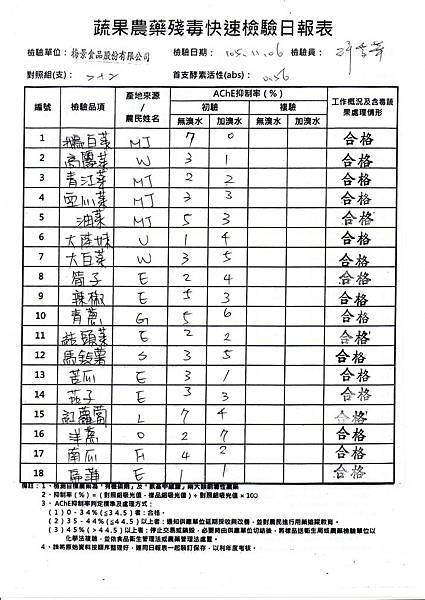 蔬果農藥殘毒快速檢驗日報表
檢驗單位：裕景食品股份有限公司 檢驗日期：105.11.06 檢驗員：
對照組(支)： 首支酵素活性(abs)：0.56
編號 檢驗品項 產地來源/農民姓名 AChE抑制率(%) 工作概況及含毒蔬果處理情形
初驗 複驗
無溴水 加溴水 無溴水 加溴水
1 鵝白菜 MJ 7 0 合格
2 高麗菜 W 3 1 合格
3 青江菜 MJ 2 2 合格
4 空心菜 MJ 3 3 合格
5 油菜 MJ 5 3 合格
6 大陸妹 U 1 4 合格
7 大白菜 W 3 5 合格
8 筍子 E 2 4 合格
9 辣椒 E 5 3 合格
10 青蔥 G 5 6 合格
11 結頭菜 E 2 2 合格
12 馬鈴薯 S 3 5 合格
13 苦瓜 E 3 1 合格
14 茄子 E 3 3 合格
15 紅蘿蔔 L 7 4 合格
16 洋蔥 O 2 7 合格
17 南瓜 F 4 2 合格
18 扁蒲 E 1 1 合格
備註：1、檢測目標農藥為「有機磷劑」及「氨基甲酸鹽」兩大類劇毒性農藥
2、抑制率(%)=(對照組吸光值-樣品組吸光值)÷對照組吸光值×100
3、AChE抑制率判定標準及處理方式：
(1)0-34%(≦34.5)者：合格。
(2)35-44%(≦44.5)以上者：通知供應單位延期採收與改善，並對農民進行用藥追蹤教育。
(3)45%(>44.5)以上者：停止交易或銷毀，必要時由供應單位切結後，將樣品送衛生局或農藥檢驗單位以
化學法複驗，並依食品衛生管理法或農藥管理法處置。
4、該將原始資料按順序整理好，連同日報表一起裝訂保存，以利年度考核。